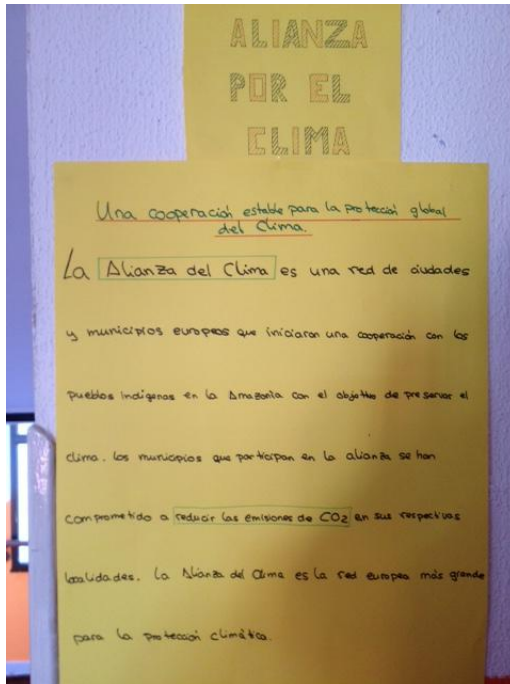 ALIANZA
POR EL
CLIMA
Una cooperación estable para la protección global
del Clima.
La Alianza del Clima es una red de ciudades
y municipios europeos que iniciaron una cooperación con los
pueblos indígenas en la Amazonía con el objetivo de preservar el
clima. los municipios que participan en la alianza se han
comprometido a reducir las emisiones de CO2 en sus respectivas
localidades. La Alianza del Clima es la red europea más grande
para la protección climática.